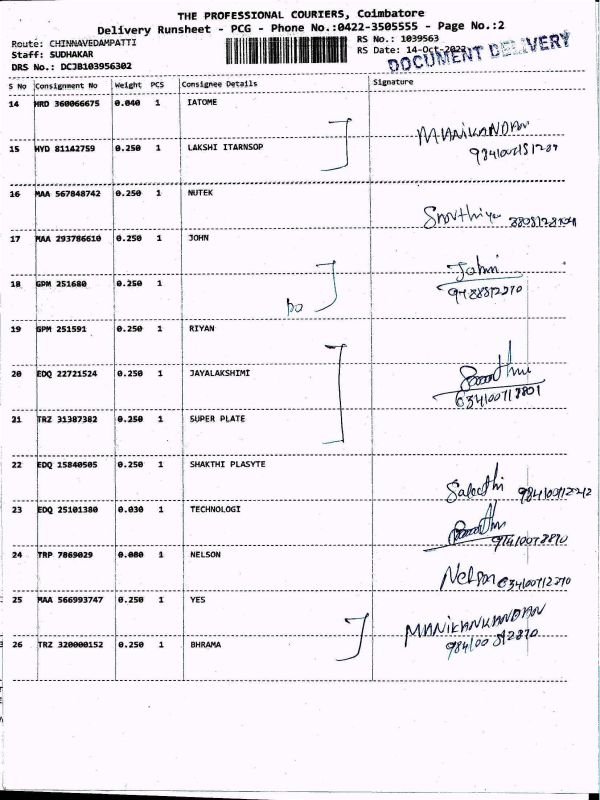 THE PROFESSIONAL COURIERS, Coimbatore
Delivery Runsheet - PCG - Phone No.:0422-3505555 - Page No.:2
Route: CHINNAVEDAMPATTI
RS No.: 1039563
Staff: SUDHAKAR
RS Date: 14-Oct-2023
DRS No.: DCJB103956302
DOCUMENT DELIVERY
S No Consignment No Weight PCS Consignee Details Signature
14 HRD 360066675 0.040 1 IATOME
MANIKANDAN
15 HYD 81142759 0.250 1 LAKSHI ITARNSOP
16 MAA 567848742 0.250 1 NUTEK
17 MAA 293786610 0.250 1 JOHN
John
18 GPM 251680 0.250 1
19 GPM 251591 0.250 1 RIYAN
20 EDQ 22721524 0.250 1 JAYALAKSHIMI
21 TRZ 31387382 0.250 1 SUPER PLATE
22 EDQ 15840505 0.250 1 SHAKTHI PLASYTE
23 EDQ 25101380 0.030 1 TECHNOLOGI
24 TRP 7869029 0.080 1 NELSON
Nelson
25 MAA 566993747 0.250 1 YES
MANIKANKANDAN
26 TRZ 320000152 0.250 1 BHRAMA